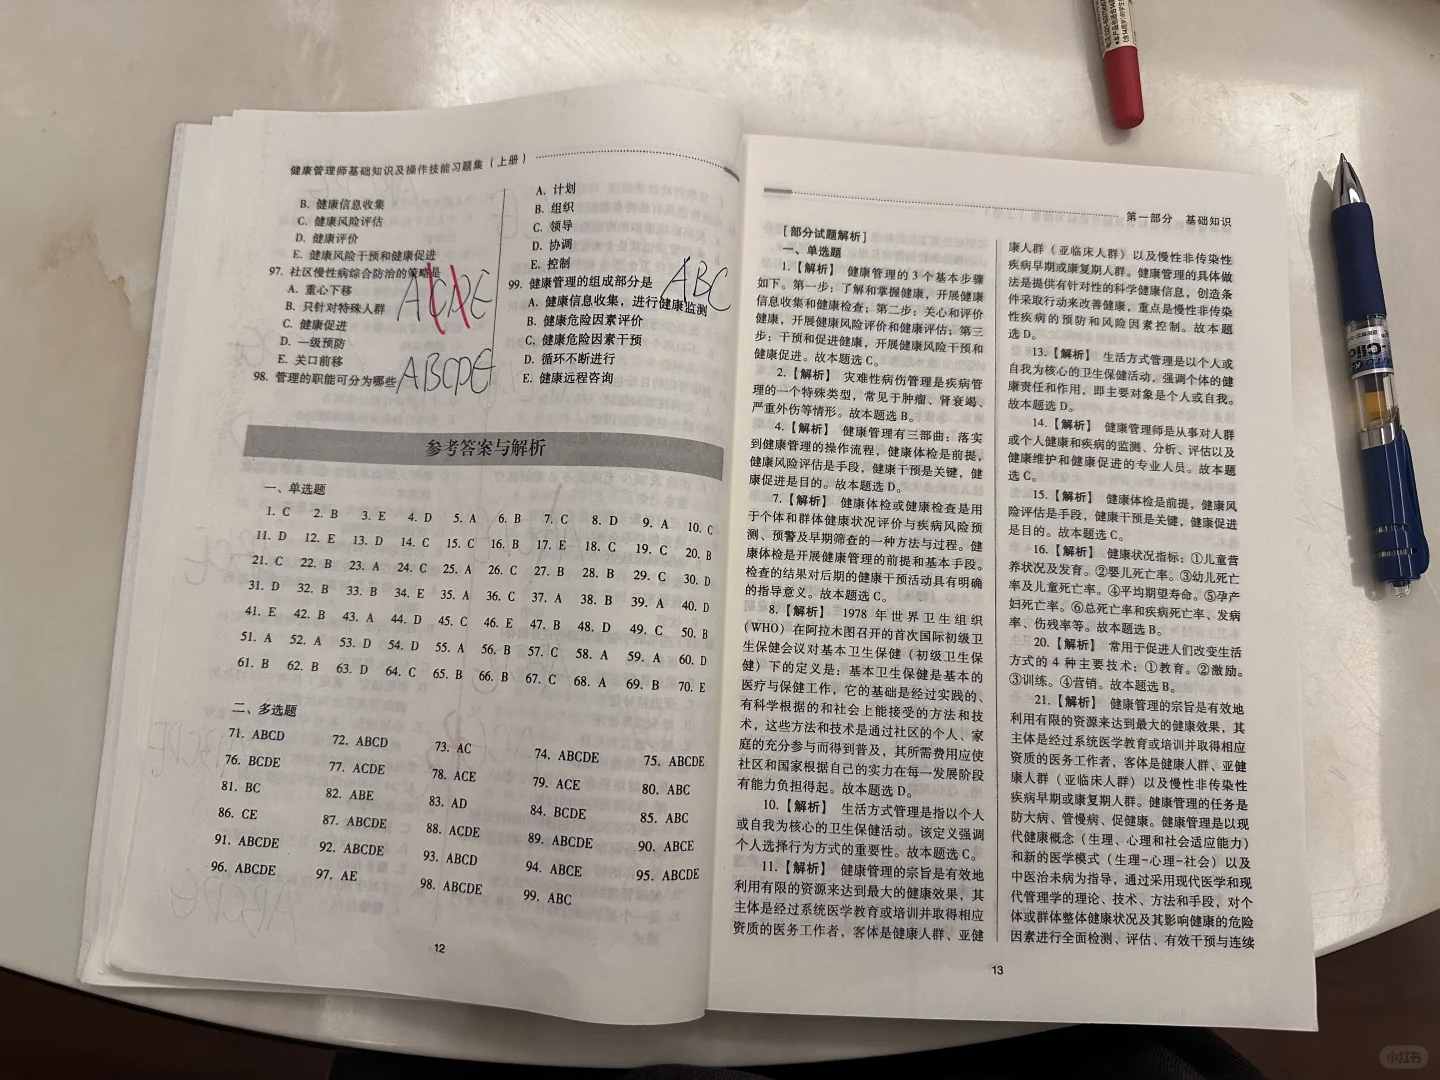 健康管理师基础知识及操作技能习题集（上册）
B. 健康信息收集
C. 健康风险评估
D. 健康评价
E. 健康风险干预和健康促进
97. 社区慢性病综合防治的策略是
A. 重心下移
B. 只针对特殊人群
C. 健康促进
D. 一级预防
E. 关口前移
ACDE
98. 管理的职能可分为哪些
ABCDE
A. 计划
B. 组织
C. 领导
D. 协调
E. 控制
99. 健康管理的组成部分是
ABC
A. 健康信息收集，进行健康监测
B. 健康危险因素评价
C. 健康危险因素干预
D. 循环不断进行
E. 健康远程咨询
参考答案与解析
一、单选题
1. C 2. B 3. E 4. D 5. A 6. B 7. C 8. D 9. A 10. C
11. D 12. E 13. D 14. C 15. C 16. B 17. E 18. C 19. C 20. B
21. C 22. B 23. A 24. C 25. A 26. C 27. B 28. B 29. C 30. D
31. D 32. B 33. B 34. E 35. A 36. C 37. A 38. B 39. A 40. D
41. E 42. B 43. A 44. D 45. C 46. E 47. B 48. D 49. C 50. B
51. A 52. A 53. D 54. D 55. A 56. B 57. C 58. A 59. A 60. D
61. B 62. B 63. D 64. C 65. B 66. B 67. C 68. A 69. B 70. E
二、多选题
71. ABCD 72. ABCD 73. AC 74. ABCDE 75. ABCDE
76. BCDE 77. ACDE 78. ACE 79. ACE 80. ABC
81. BC 82. ABE 83. AD 84. BCDE 85. ABC
86. CE 87. ABCDE 88. ACDE 89. ABCDE 90. ABCE
91. ABCDE 92. ABCDE 93. ABCD 94. ABCE 95. ABCDE
96. ABCDE 97. AE 98. ABCDE 99. ABC
12
第一部分 基础知识
［部分试题解析］
一、单选题
1.【解析】 健康管理的 3 个基本步骤
如下。第一步：了解和掌握健康，开展健康
信息收集和健康检查；第二步：关心和评价
健康，开展健康风险评价和健康评估；第三
步：干预和促进健康，开展健康风险干预和
健康促进。故本题选 C。
2.【解析】 灾难性病伤管理是疾病管
理的一个特殊类型，常见于肿瘤、肾衰竭、
严重外伤等情形。故本题选 B。
4.【解析】 健康管理有三部曲：落实
到健康管理的操作流程，健康体检是前提，
健康风险评估是手段，健康干预是关键，健
康促进是目的。故本题选 D。
7.【解析】 健康体检或健康检查是用
于个体和群体健康状况评价与疾病风险预
测、预警及早期筛查的一种方法与过程。健
康体检是开展健康管理的前提和基本手段。
检查的结果对后期的健康干预活动具有明确
的指导意义。故本题选 C。
8.【解析】 1978 年世界卫生组织
（WHO）在阿拉木图召开的首次国际初级卫
生保健会议对基本卫生保健（初级卫生保
健）下的定义是：基本卫生保健是基本的
医疗与保健工作，它的基础是经过实践的、
有科学根据的和社会上能接受的方法和技
术，这些方法和技术是通过社区的个人、家
庭的充分参与而得到普及，其所需费用应使
社区和国家根据自己的实力在每一发展阶段
有能力负担得起。故本题选 D。
10.【解析】 生活方式管理是指以个人
或自我为核心的卫生保健活动。该定义强调
个人选择行为方式的重要性。故本题选 C。
11.【解析】 健康管理的宗旨是有效地
利用有限的资源来达到最大的健康效果，其
主体是经过系统医学教育或培训并取得相应
资质的医务工作者，客体是健康人群、亚健
康人群（亚临床人群）以及慢性非传染性
疾病早期或康复期人群。健康管理的具体做
法是提供有针对性的科学健康信息，创造条
件采取行动来改善健康，重点是慢性非传染
性疾病的预防和风险因素控制。故本题
选 D。
13.【解析】 生活方式管理是以个人或
自我为核心的卫生保健活动，强调个体的健
康责任和作用，即主要对象是个人或自我。
故本题选 D。
14.【解析】 健康管理师是从事对人群
或个人健康和疾病的监测、分析、评估以及
健康维护和健康促进的专业人员。故本题
选 C。
15.【解析】 健康体检是前提，健康风
险评估是手段，健康干预是关键，健康促进
是目的。故本题选 C。
16.【解析】 健康状况指标：①儿童营
养状况及发育。②婴儿死亡率。③幼儿死亡
率及儿童死亡率。④平均期望寿命。⑤孕产
妇死亡率。⑥总死亡率和疾病死亡率、发病
率、伤残率等。故本题选 B。
20.【解析】 常用于促进人们改变生活
方式的 4 种主要技术：①教育。②激励。
③训练。④营销。故本题选 B。
21.【解析】 健康管理的宗旨是有效地
利用有限的资源来达到最大的健康效果，其
主体是经过系统医学教育或培训并取得相应
资质的医务工作者，客体是健康人群、亚健
康人群（亚临床人群）以及慢性非传染性
疾病早期或康复期人群。健康管理的任务是
防大病、管慢病、促健康。健康管理是以现
代健康概念（生理、心理和社会适应能力）
和新的医学模式（生理-心理-社会）以及
中医治未病为指导，通过采用现代医学和现
代管理学的理论、技术、方法和手段，对个
体或群体整体健康状况及其影响健康的危险
因素进行全面检测、评估、有效干预与连续
13
小红书